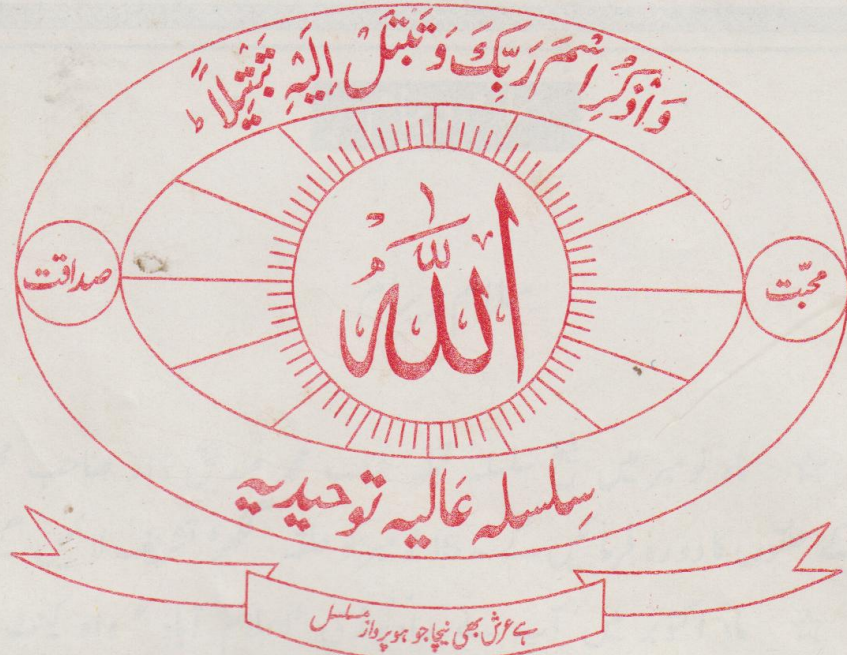 وَاذْكُرِ اسْمَ رَبِّكَ وَتَبَتَّلْ اِلَيْهِ تَبْتِيْلًا ؕ
اللّٰہُ
محبّت
صداقت
سِلسلہ عَالیہ توحیدیہ
ہے عرش بھی نیچا جو ہو پرواز مسلسل